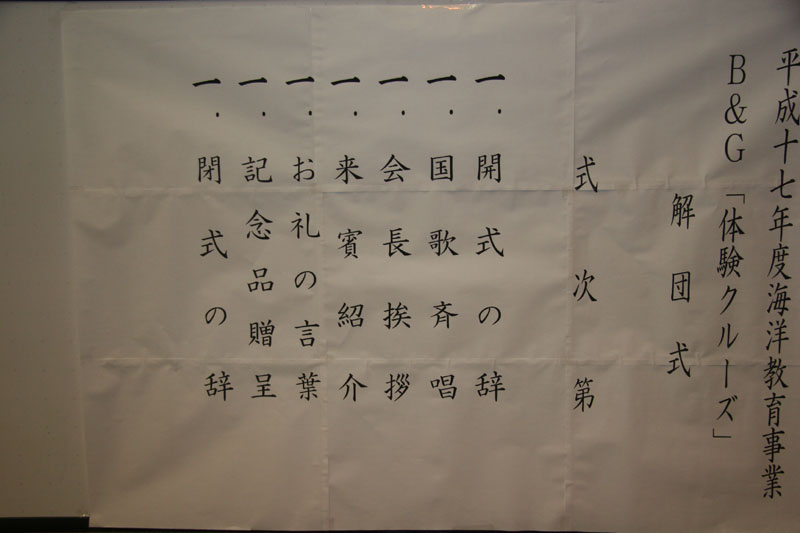 平成十七年度海洋教育事業
B&G「体験クルーズ」
解団式
式次第
一．開式の辞
一．国歌斉唱
一．会長挨拶
一．来賓紹介
一．お礼の言葉
一．記念品贈呈
一．閉式の辞